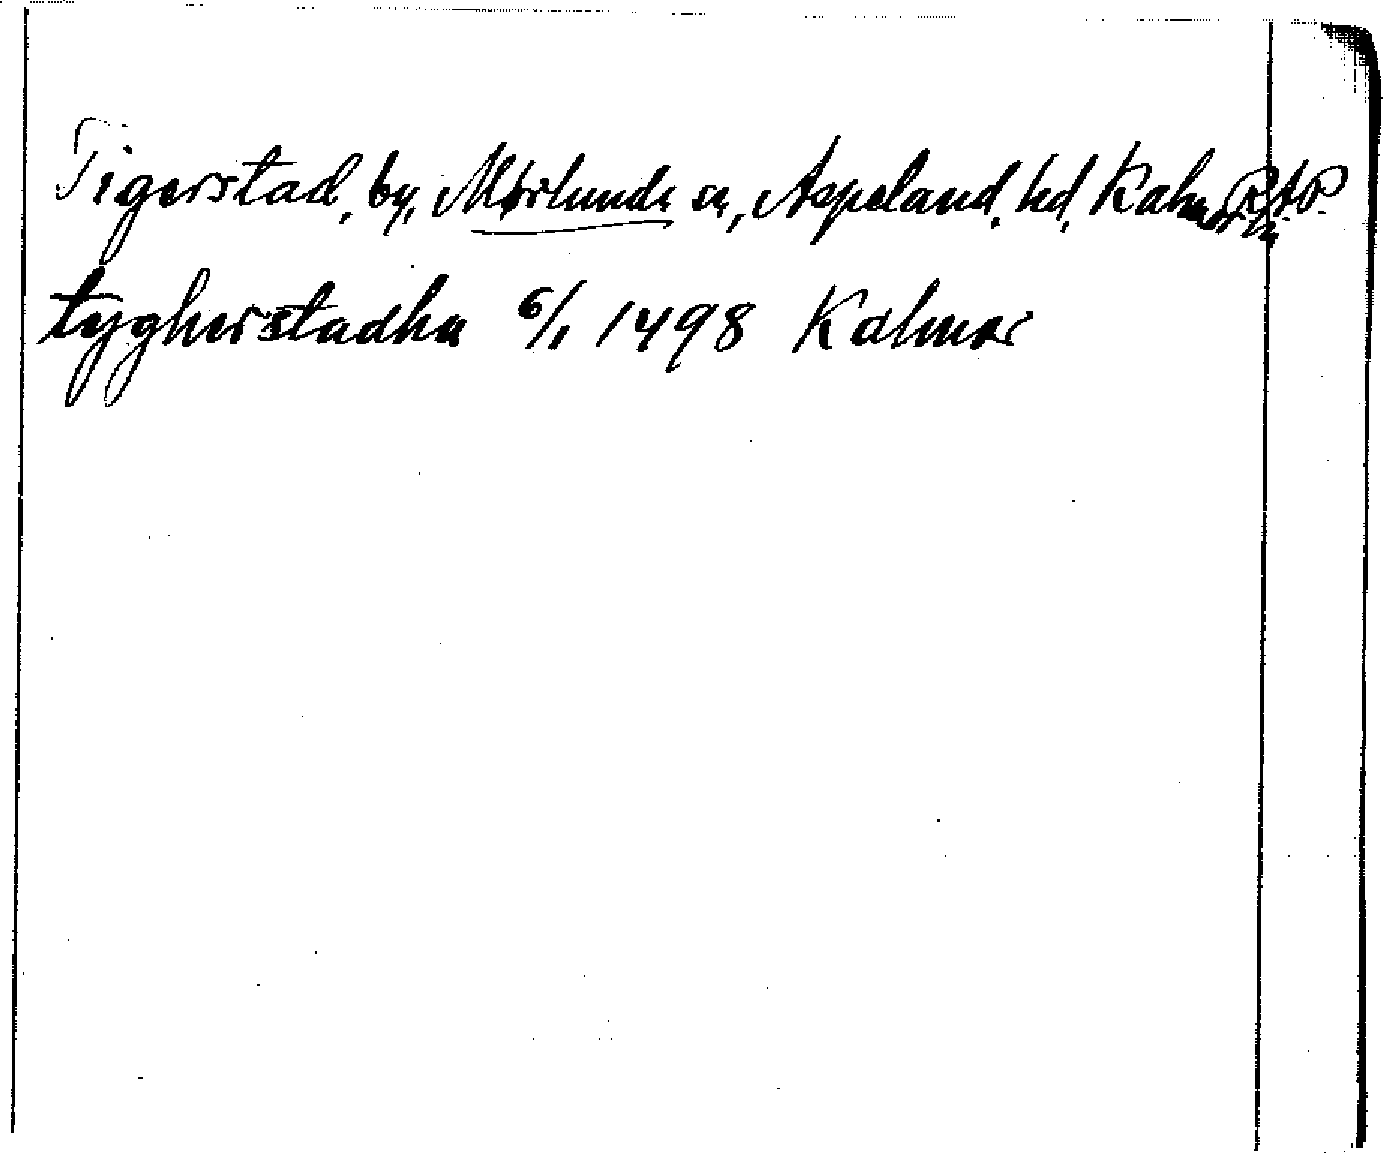 Tigerstad, by, Mörlunda sn, Aspeland. hd, Kalmar ln RAP
tygherstadha 6/1 1498 Kalmar